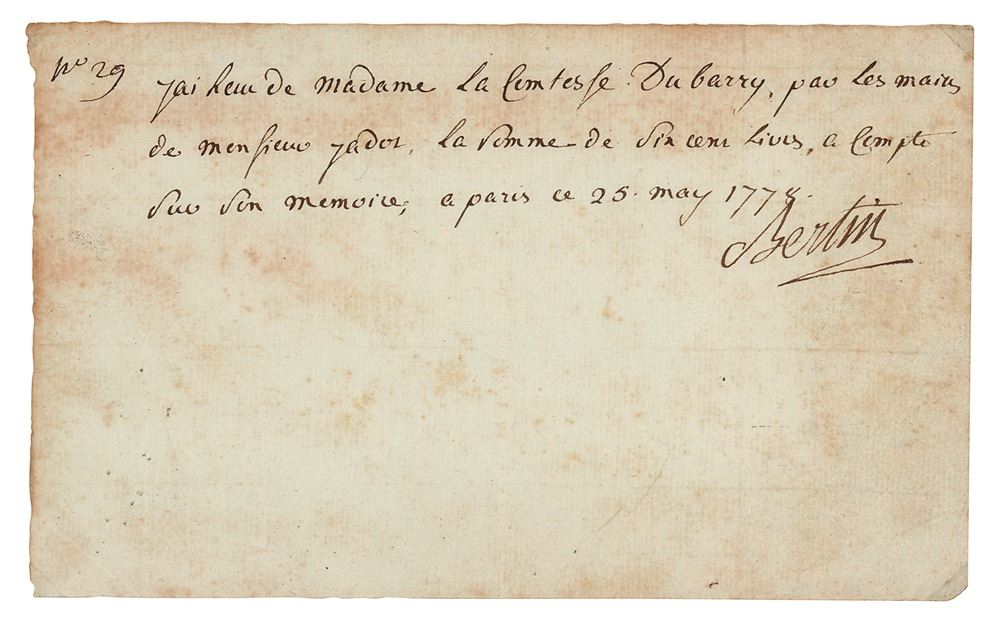 No 29
jai Reçu de Madame La Comtesse Dubarry, par les mains
de monsieur jadot, la somme de Six cent Livres, a Compte
sur son memoire, a paris ce 25. may 1778.
Bertin